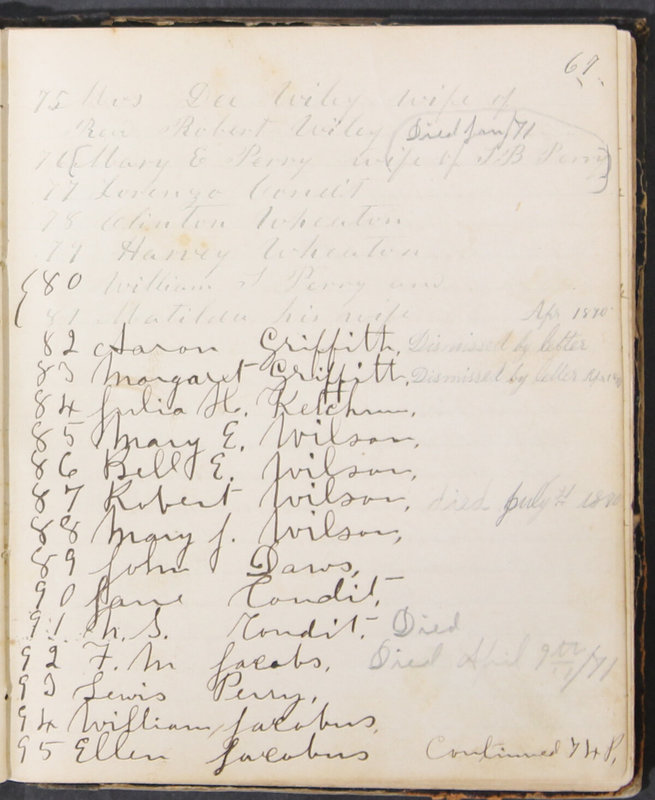 69
75 Mrs Dee Wiley wife of
Rev Robert Wiley Died Jan/71
76 Mary E Perry wife of S B Perry
77 Lorenzo Condit
78 Clinton Wheaton
79 Harvey Wheaton
80 William S Perry and
81 Matilda his wife Apr 1890
82 Aaron Griffith, Dismissed by letter
83 Margaret Griffith, Dismissed by letter
84 Julia H. Ketchum,
85 Mary E. Wilson,
86 Bell E. Wilson,
87 Robert Wilson, died July
88 Mary J. Wilson,
89 John Daws,
90 Jane Condit,
91 N. S. Condit, Died
92 F. M Jacobs, Died April 9th/71
93 Lewis Perry,
94 William Jacobus,
95 Ellen Jacobus Continued 74 P,